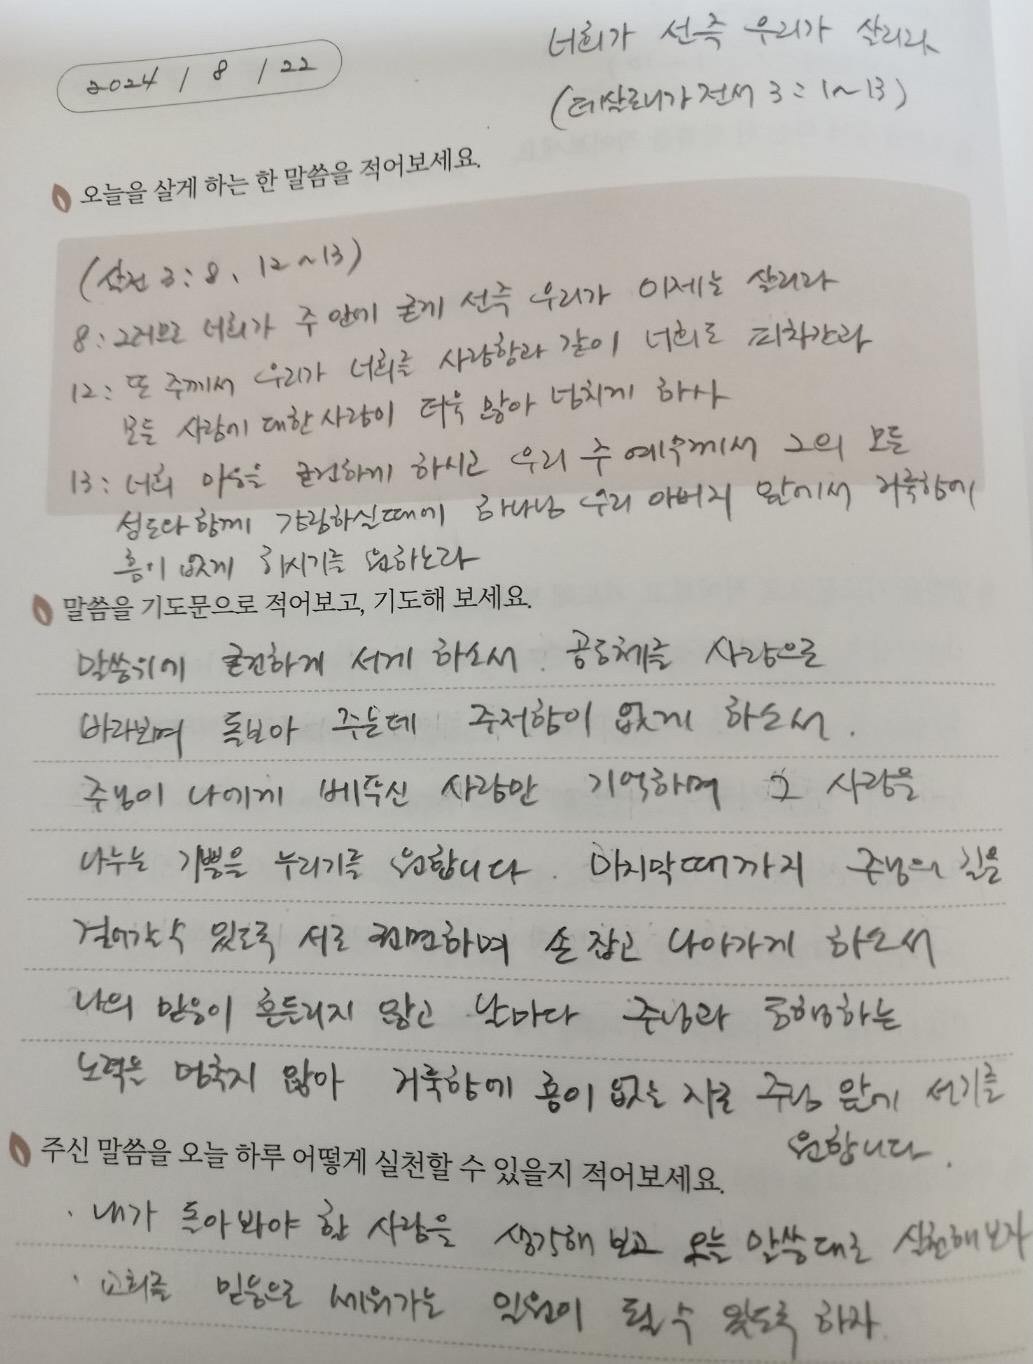 너희가 선즉 우리가 살리라
2024 / 8 / 22
(데살로니가전서 3:1~13)
오늘을 살게 하는 한 말씀을 적어보세요.
(살전 3:8, 12~13)
8: 그러므로 너희가 주 안에 굳게 선즉 우리가 이제는 살리라
12: 또 주께서 우리가 너희를 사랑함과 같이 너희도 피차간과
모든 사람에 대한 사랑이 더욱 많아 넘치게 하사
13: 너희 마음을 굳건하게 하시고 우리 주 예수께서 그의 모든
성도와 함께 강림하실 때에 하나님 우리 아버지 앞에서 거룩함에
흠이 없게 하시기를 원하노라
말씀을 기도문으로 적어보고, 기도해 보세요.
말씀위에 굳건하게 서게 하소서. 공동체를 사랑으로
바라보며 돌보아 주는데 주저함이 없게 하소서.
주님이 나에게 베푸신 사랑만 기억하며 그 사랑을
나누는 기쁨을 누리기를 원합니다. 마지막때까지 주님의 길을
걸어갈 수 있도록 서로 권면하며 손 잡고 나아가게 하소서
나의 믿음이 흔들리지 않고 날마다 주님과 동행하는
노력을 멈추지 않아 거룩함에 흠이 없는 자로 주님 앞에 서기를
원합니다.
주신 말씀을 오늘 하루 어떻게 실천할 수 있을지 적어보세요.
· 내가 돌아봐야 할 사람을 생각해 보고 오늘 말씀대로 실천해보자
· 교회를 믿음으로 세워가는 일원이 될 수 있도록 하자.